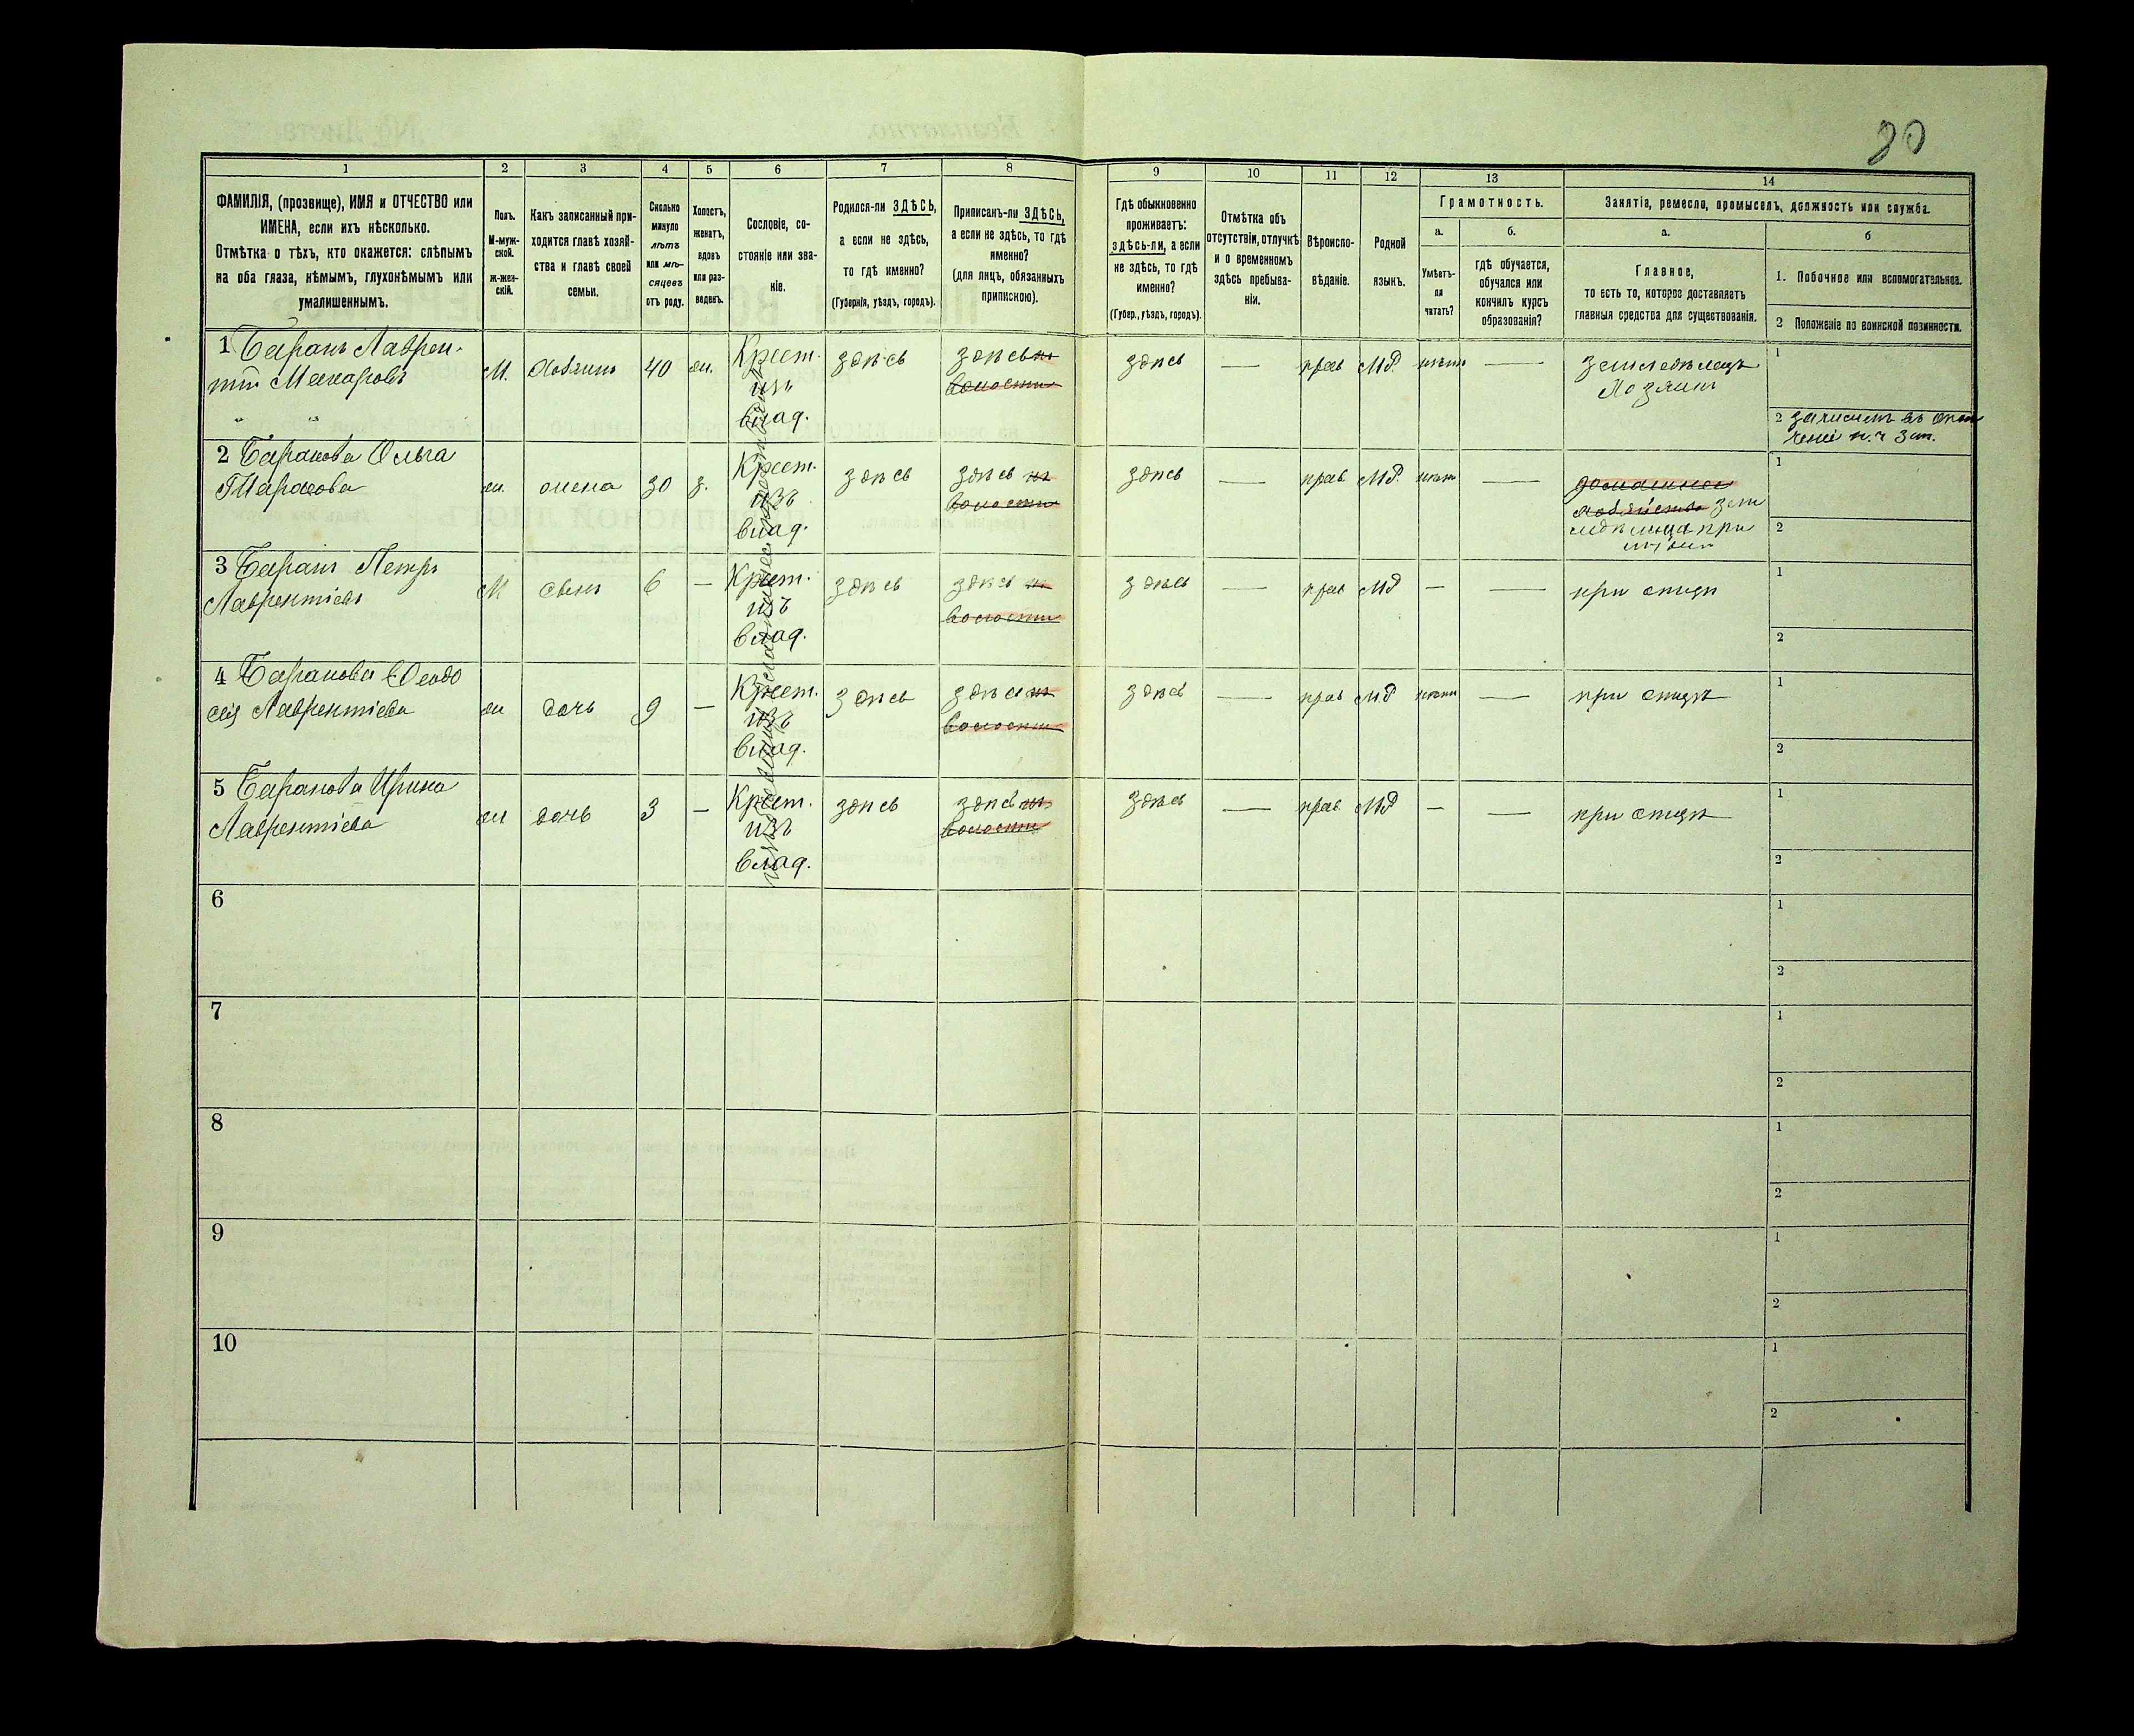 20
1
2
3
4
5
6
7
8
9
10
11
12
13
14
ФАМИЛІЯ, (прозвище), ИМЯ и ОТЧЕСТВО или
ИМЕНА, если ихъ нѣсколько.
Отмѣтка о тѣхъ, кто окажется: слѣпымъ
на оба глаза, нѣмымъ, глухонѣмымъ или
умалишеннымъ.
Полъ.
М-муж-
ской.
ж-жен-
скій.
Какъ записанный при-
ходится главѣ хозяй-
ства и главѣ своей
семьи.
Сколько
минуло
лѣтъ
или мѣ-
сяцевъ
отъ роду.
Холостъ,
женатъ,
вдовъ
или раз-
веденъ.
Сословіе, со-
стояніе или зва-
ніе.
Родился-ли ЗДѢСЬ,
а если не здѣсь,
то гдѣ именно?
(Губернія, уѣздъ, городъ).
Приписанъ-ли ЗДѢСЬ,
а если не здѣсь, то гдѣ
именно?
(для лицъ, обязанныхъ
припискою).
Гдѣ обыкновенно
проживаетъ:
здѣсь-ли, а если
не здѣсь, то гдѣ
именно?
(Губер., уѣздъ, городъ).
Отмѣтка объ
отсутствіи, отлучкѣ
и о временномъ
здѣсь пребыва-
ніи.
Вѣроиспо-
вѣданіе.
Родной
языкъ.
Грамотность.
а.
Умѣетъ-
ли
читать?
б.
гдѣ обучается,
обучался или
кончилъ курсъ
образованія?
Занятія, ремесло, промыселъ, должность или служба.
а.
Главное,
то есть то, которое доставляетъ
главныя средства для существованія.
б
1. Побочное или вспомогательное.
2 Положеніе по воинской повинности.
1 Баранъ Лаврен-
тій Макаровъ
М. Хозяинъ 40 ж. Крест. здѣсь здѣсь здѣсь — прав МР нѣтъ — земледѣлецъ 1
изъ волости Хозяинъ
влад.
2
2 Баранова Ольга
Тарасова
ж. жена 30 з. Крест. здѣсь здѣсь здѣсь — прав МР. нѣтъ — домашнее 1
изъ волости хозяйство зем
влад. ледѣлица при 2
3 Баранъ Петръ
Лаврентіевъ
М сынъ 6 — Крест. здѣсь здѣсь здѣсь — прав МР — — при отцѣ 1
изъ волости
влад. 2
4 Баранова Ѳеодо
сія Лаврентіева
ж дочь 9 — Крест. здѣсь здѣсь здѣсь — прав МР нѣтъ — при отцѣ 1
изъ волости
влад. 2
5 Баранова Ирина
Лаврентіева
ж дочь 3 — Крест. здѣсь здѣсь здѣсь — прав МР — — при отцѣ 1
изъ волости
влад. 2
6 1
2
7 1
2
8 1
2
9 1
2
10 1
2